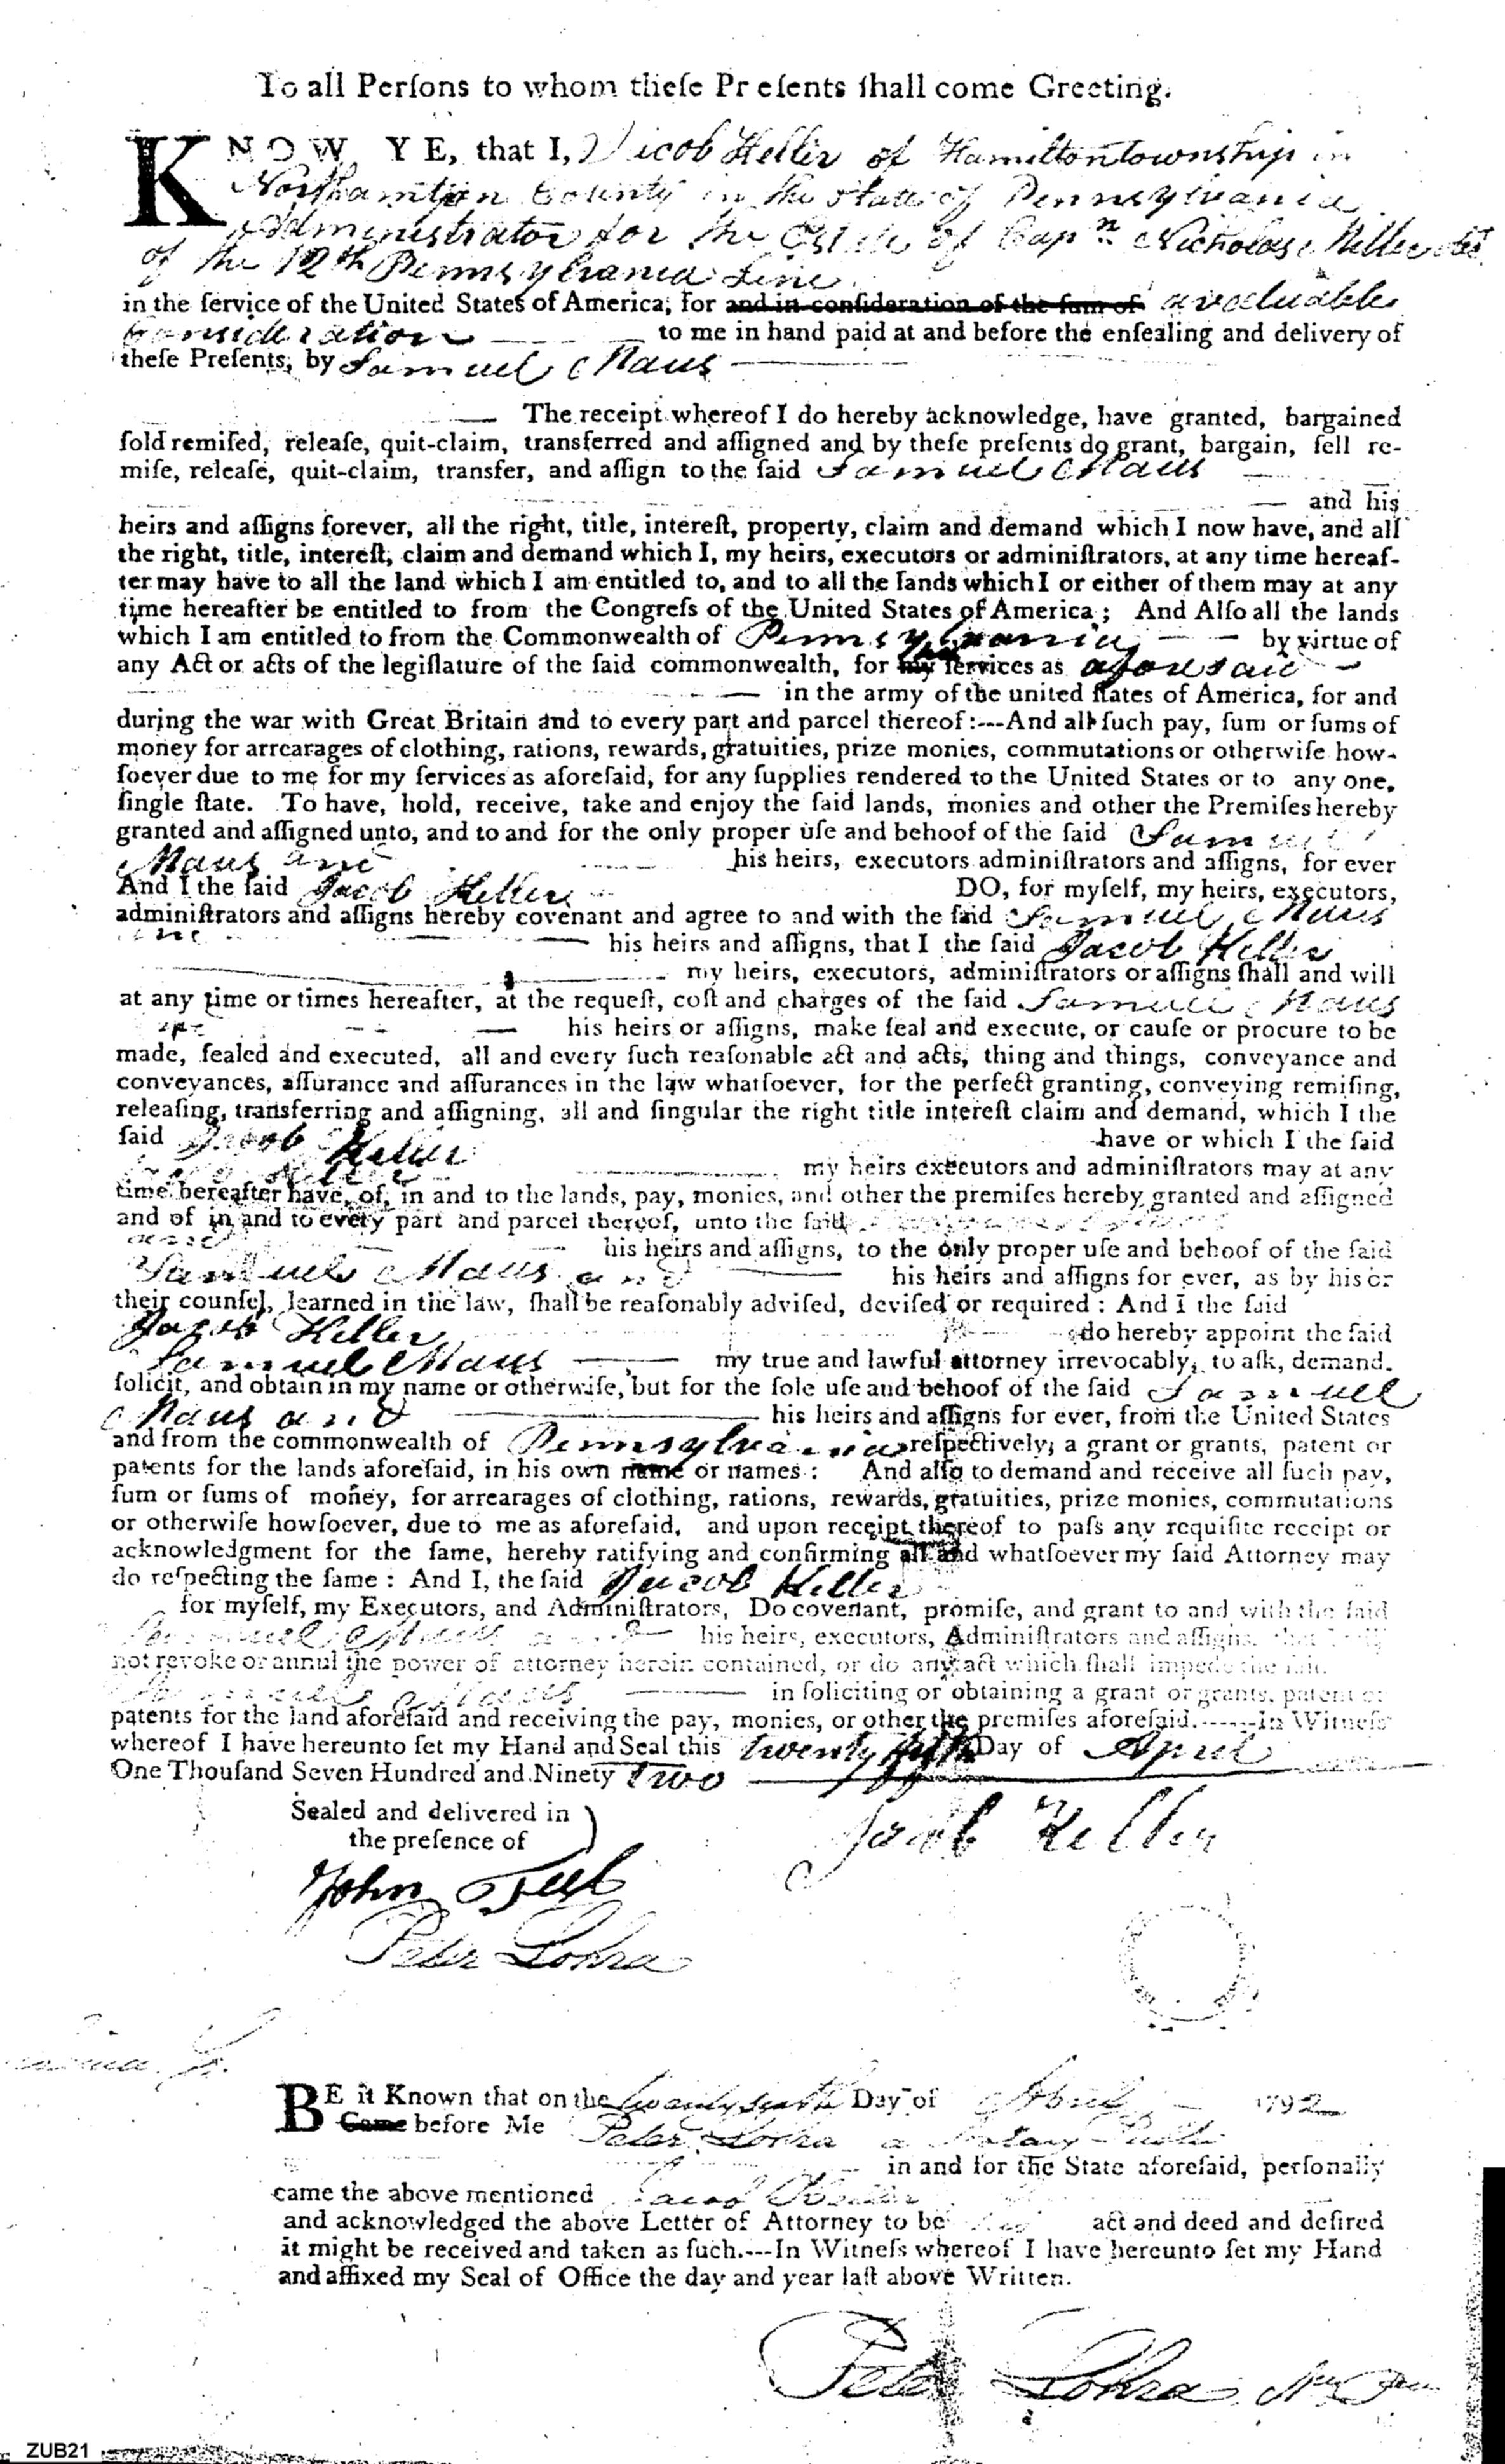 To all Perſons to whom theſe Preſents ſhall come Greeting.
KNOW YE, that I, Jacob Keller of Hamilton township in
Northampton County in the State of Pennsylvania
Administrator for the Estate of Capn Nicholas Miller
of the 12th Pennsylvania Line
in the ſervice of the United States of America, for and in conſideration of the ſum of a valuable
Consideration to me in hand paid at and before the enſealing and delivery of
theſe Preſents, by Samuel Maus
The receipt whereof I do hereby acknowledge, have granted, bargained
ſold remiſed, releaſe, quit-claim, transferred and aſſigned and by theſe preſents do grant, bargain, ſell re-
miſe, releaſe, quit-claim, transfer, and aſſign to the ſaid Samuel Maus
and his
heirs and aſſigns forever, all the right, title, intereſt, property, claim and demand which I now have, and all
the right, title, intereſt, claim and demand which I, my heirs, executors or adminiſtrators, at any time hereaf-
ter may have to all the land which I am entitled to, and to all the lands which I or either of them may at any
time hereafter be entitled to from the Congreſs of the United States of America; And Alſo all the lands
which I am entitled to from the Commonwealth of Pennsylvania by virtue of
any Act or acts of the legiſlature of the ſaid commonwealth, for my ſervices as aforesaid
in the army of the united ſtates of America, for and
during the war with Great Britain and to every part and parcel thereof:---And all ſuch pay, ſum or ſums of
money for arrearages of clothing, rations, rewards, gratuities, prize monies, commutations or otherwiſe how-
ſoever due to me for my ſervices as aforeſaid, for any ſupplies rendered to the United States or to any one,
ſingle ſtate. To have, hold, receive, take and enjoy the ſaid lands, monies and other the Premiſes hereby
granted and aſſigned unto, and to and for the only proper uſe and behoof of the ſaid Samuel
Maus and his heirs, executors adminiſtrators and aſſigns, for ever
And I the ſaid Jacob Keller DO, for myſelf, my heirs, executors,
adminiſtrators and aſſigns hereby covenant and agree to and with the ſaid Samuel Maus
and his heirs and aſſigns, that I the ſaid Jacob Keller
my heirs, executors, adminiſtrators or aſſigns ſhall and will
at any time or times hereafter, at the requeſt, coſt and charges of the ſaid Samuel Maus
his heirs or aſſigns, make ſeal and execute, or cauſe or procure to be
made, ſealed and executed, all and every ſuch reaſonable act and acts, thing and things, conveyance and
conveyances, aſſurance and aſſurances in the law whatſoever, for the perfect granting, conveying remiſing,
releaſing, transferring and aſſigning, all and ſingular the right title intereſt claim and demand, which I the
ſaid Jacob Keller have or which I the ſaid
Jacob Keller my heirs executors and adminiſtrators may at any
time hereafter have, of, in and to the lands, pay, monies, and other the premiſes hereby granted and aſſigned
and of in and to every part and parcel thereof, unto the ſaid
and his heirs and aſſigns, to the only proper uſe and behoof of the ſaid
Samuel Maus and his heirs and aſſigns for ever, as by his or
their counſel, learned in the law, ſhall be reaſonably adviſed, deviſed or required: And I the ſaid
Jacob Keller do hereby appoint the ſaid
Samuel Maus my true and lawful attorney irrevocably, to aſk, demand.
ſolicit, and obtain in my name or otherwiſe, but for the ſole uſe and behoof of the ſaid Samuel
Maus and his heirs and aſſigns for ever, from the United States
and from the commonwealth of Pennsylvania reſpectively, a grant or grants, patent or
patents for the lands aforeſaid, in his own name or names: And alſo to demand and receive all ſuch pay,
ſum or ſums of money, for arrearages of clothing, rations, rewards, gratuities, prize monies, commutations
or otherwiſe howſoever, due to me as aforeſaid, and upon receipt thereof to paſs any requiſite receipt or
acknowledgment for the ſame, hereby ratifying and confirming all and whatſoever my ſaid Attorney may
do reſpecting the ſame: And I, the ſaid Jacob Keller
for myſelf, my Executors, and Adminiſtrators, Do covenant, promiſe, and grant to and with the ſaid
Samuel Maus and his heirs, executors, Adminiſtrators and aſſigns, that I will
not revoke or annul the power of attorney herein contained, or do any act which ſhall impede the ſaid
Samuel Maus in ſoliciting or obtaining a grant or grants, patent or
patents for the land aforeſaid and receiving the pay, monies, or other the premiſes aforeſaid.------In Witneſs
whereof I have hereunto ſet my Hand and Seal this twenty fifth Day of April
One Thouſand Seven Hundred and Ninety Two
Sealed and delivered in
the preſence of
Jacob Keller
John
Peter Lohra
BE it Known that on the twenty sixth Day of April 1792
Came before Me Peter Lohra a Notary Public
in and for the State aforeſaid, perſonally
came the above mentioned Jacob Keller
and acknowledged the above Letter of Attorney to be his act and deed and deſired
it might be received and taken as ſuch.---In Witneſs whereof I have hereunto ſet my Hand
and affixed my Seal of Office the day and year laſt above Written.
Peter Lohra
ZUB21